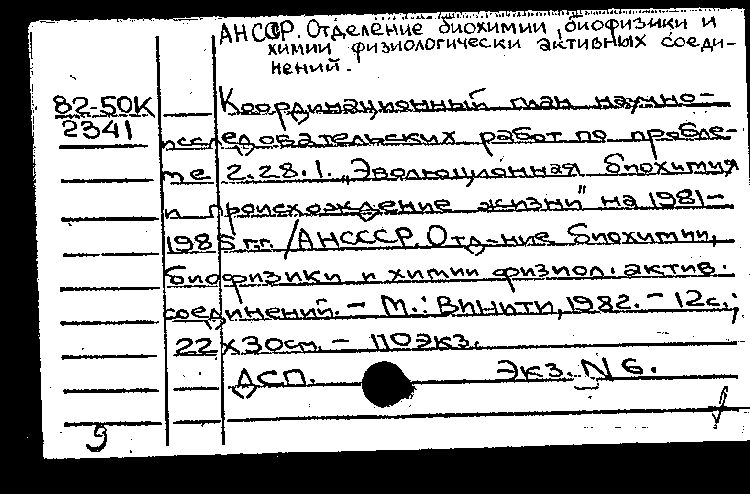 АНСССР. Отделение биохимии, биофизики и
химии физиологически активных соеди-
нений.
82-50К
2341
Координационный план научно-
исследовательских работ по пробле-
ме 2.28.1. „Эволюционная биохимия
и происхождение жизни" на 1981-
1985 г.г. /АНСССР. Отд-ние биохимии,
биофизики и химии физиол. актив.
соединений. - М.: ВИНИТИ, 1982. - 12с.;
22х30см. - 110экз.
ДСП. Экз. N 6.
9